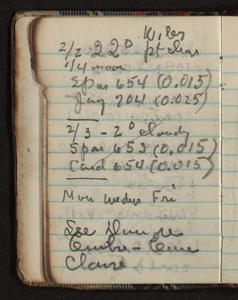 2/2 22°
pt clear
1/4 moon
Spar 654 (0.015)
Jay 204 (0.025)
2/3 - 2° cloudy
Spar 653 (0.015)
Card 654 (0.015)
Mon Wedns Fri
See
Claire